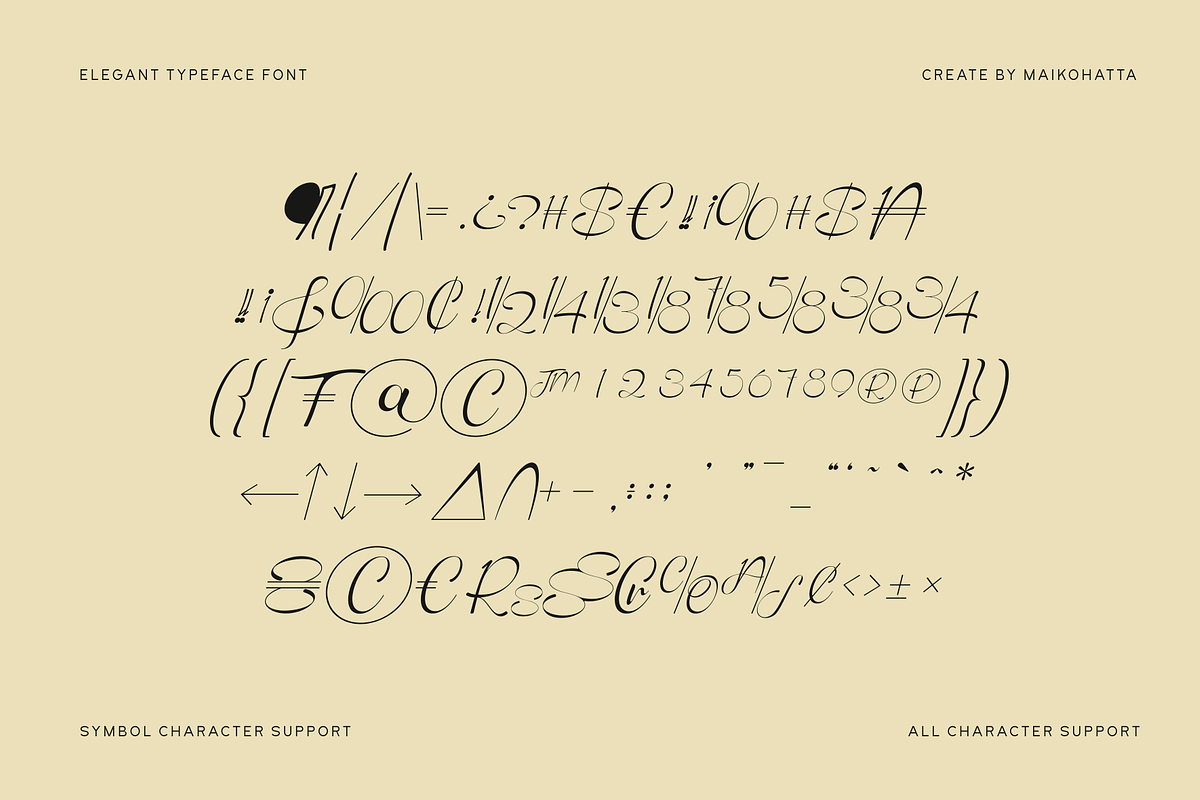 ELEGANT TYPEFACE FONT
CREATE BY MAIKOHATTA
¶ ¦ / | \ = . ¿ ? # $ € !! ¡ % # $ ₳
!! ¡ ₰ ‰ ₵ ! ½ ¼ ⅓ ⅛ ⅞ ⅝ ⅜ ¾
( { [ ₮ @ © ™ 1 2 3 4 5 6 7 8 9 ® ℗ ] } )
← ↑ ↓ → ∆ ∩ + − , ÷ : ; ’ ” ¯ _ “ ‘ ~ ` ^ *
© € R s S ₢ ℅ < > ± ×
SYMBOL CHARACTER SUPPORT
ALL CHARACTER SUPPORT